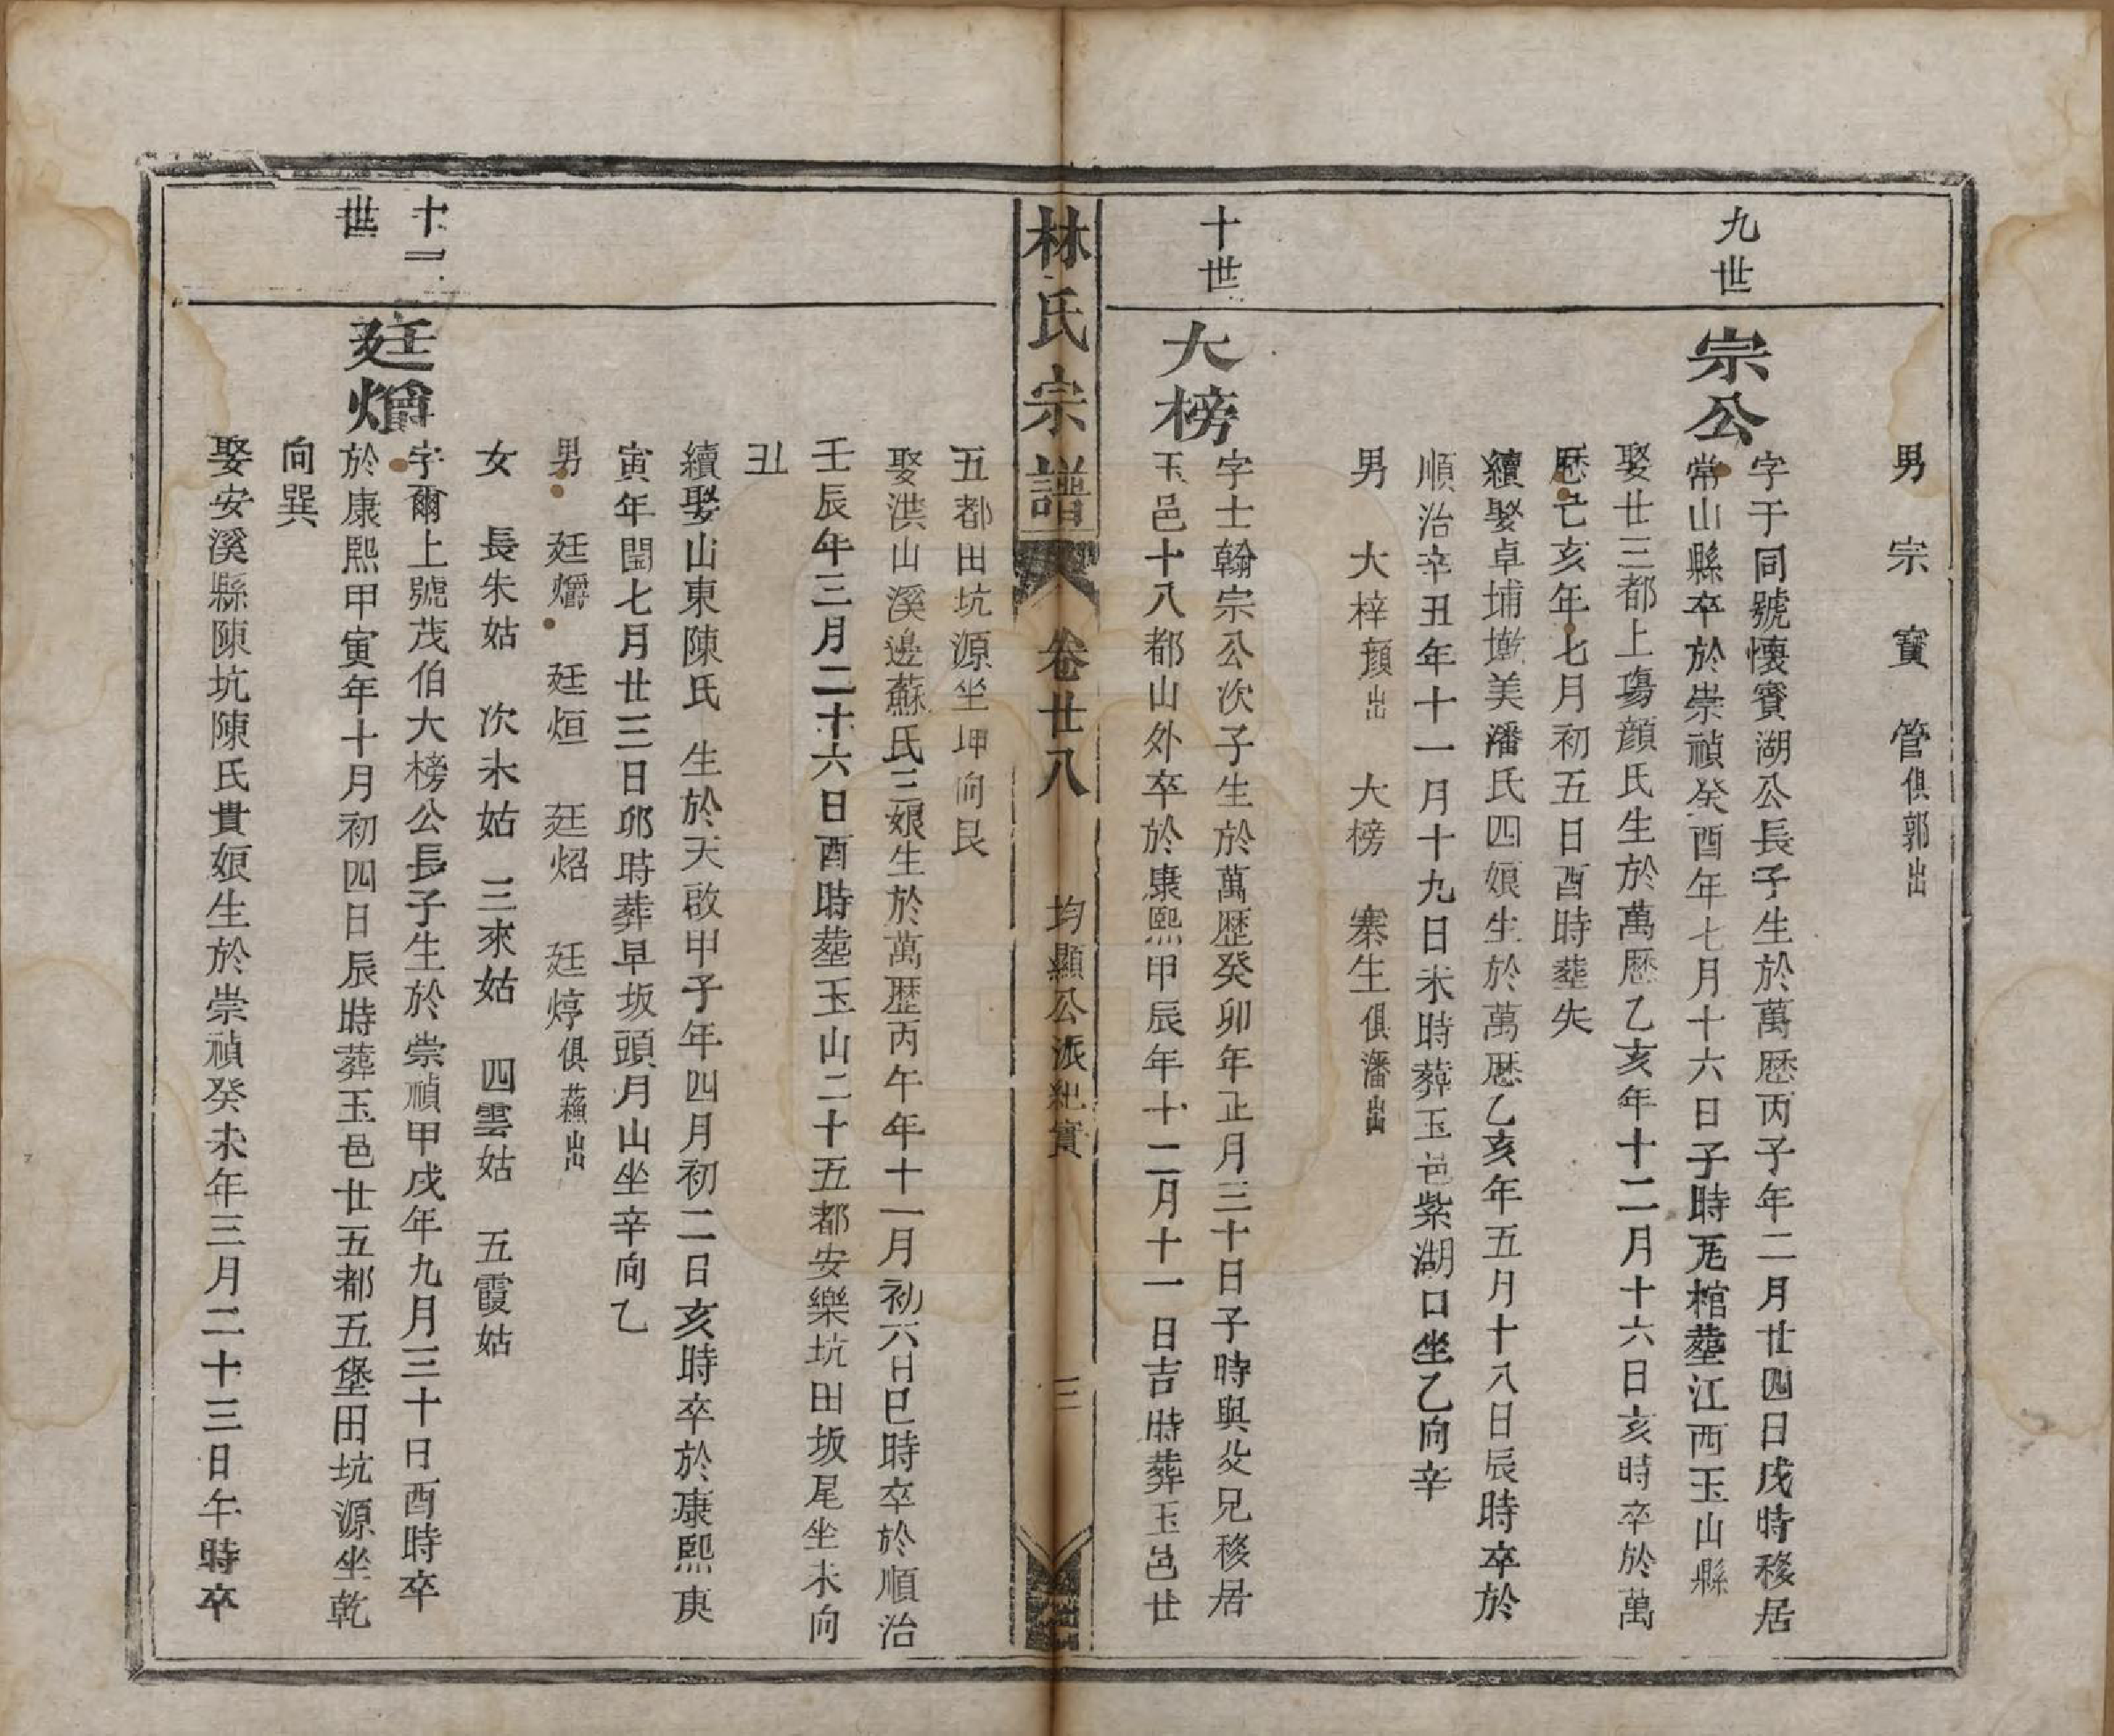 男 宗 寶 管俱郭出
九世
宗公
字于同號懷賓湖公長子生於萬歷丙子年二月廿四日戌時移居
常山縣卒於崇禎癸酉年七月十六日子時旡棺塟江西玉山縣
娶廿三都上塲顔氏生於萬歷乙亥年十二月十六日亥時卒於萬
歷亡亥年七月初五日酉時塟失
續娶卓埔墘美潘氏四娘生於萬歷乙亥年五月十八日辰時卒於
順治辛丑年十一月十九日未時葬玉邑紫湖口坐乙向辛
男 大梓顔出 大榜 寨生俱潘出
十世
大榜
字士翰宗公次子生於萬歷癸卯年正月三十日子時與父兄移居
玉邑十八都山外卒於康熙甲辰年十二月十一日吉時葬玉邑廿
林氏宗譜 卷廿八 均顯公派紀實 三
五都田坑源坐坤向艮
娶洪山溪邊蘇氏三娘生於萬歷丙午年十一月初六日巳時卒於順治
壬辰年三月二十六日酉時塟玉山二十五都安樂坑田坂尾坐未向
丑
續娶山東陳氏 生於天啟甲子年四月初二日亥時卒於康熙庚
寅年閏七月廿三日卯時葬早坂頭月山坐辛向乙
男 廷爝 廷烜 廷炤 廷焞俱蘓出
女 長朱姑 次未姑 三來姑 四雲姑 五霞姑
十一世
廷爝
字爾上號茂伯大榜公長子生於崇禎甲戌年九月三十日酉時卒
於康熙甲寅年十月初四日辰時葬玉邑廿五都五堡田坑源坐乾
向巽
娶安溪縣陳坑陳氏貴娘生於崇禎癸未年三月二十三日午時卒